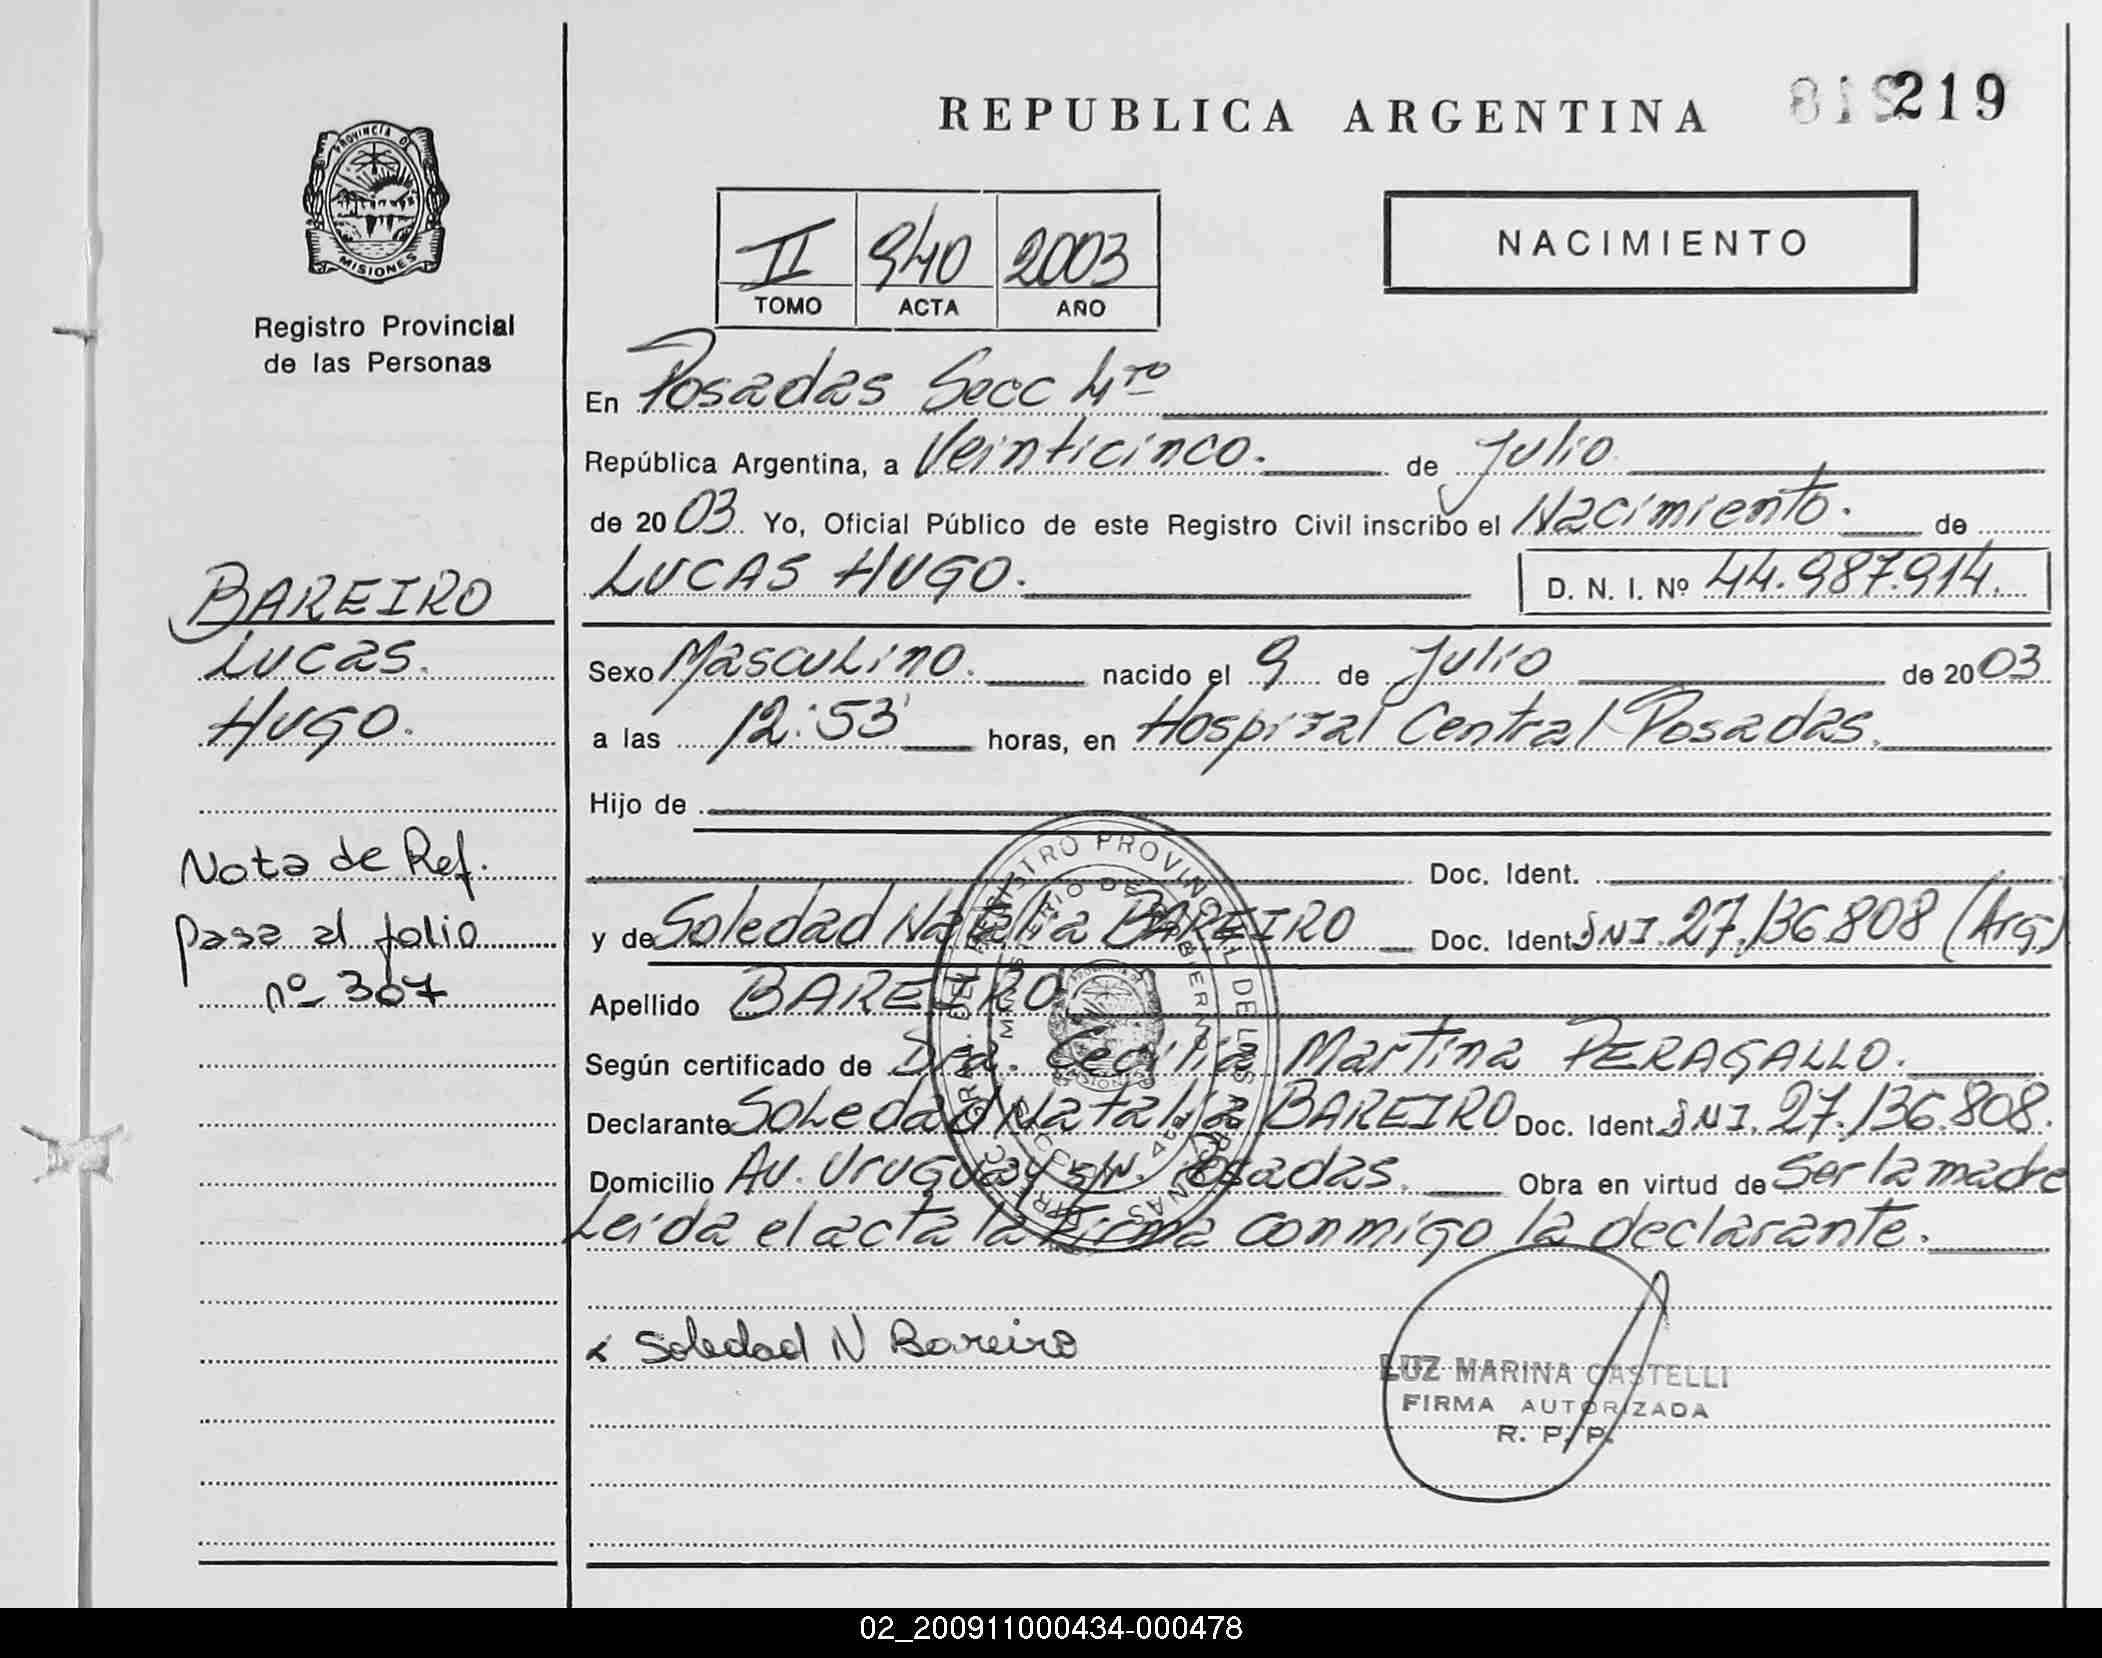 REPUBLICA ARGENTINA
219
PROVINCIA DE
MISIONES
Registro Provincial
de las Personas
II 940 2003
TOMO ACTA AÑO
NACIMIENTO
En Posadas Secc 4to
República Argentina, a Veinticinco. de Julio
de 2003 Yo, Oficial Público de este Registro Civil inscribo el Nacimiento. de
LUCAS HUGO. D. N. I. Nº 44.987.914.
BAREIRO
Lucas.
Hugo.
Sexo Masculino. nacido el 9 de Julio de 2003
a las 12:53 horas, en Hospital Central Posadas.
Hijo de
Doc. Ident.
Nota de Ref.
pasa al folio
nº 307
y de Soledad Natalia BAREIRO Doc. Ident. DNI. 27.136.808 (Arg)
Apellido BAREIRO
Según certificado de Dra. Cecilia Martina PERAGALLO.
Declarante Soledad Natalia BAREIRO Doc. Ident. DNI. 27.136.808.
Domicilio Av. Uruguay s/n. Posadas. Obra en virtud de Ser la madre
Leida el acta la Firma conmigo la declarante.
x Soledad N Bareiro
LUZ MARINA CASTELLI
FIRMA AUTORIZADA
R. P. P.
02_200911000434-000478